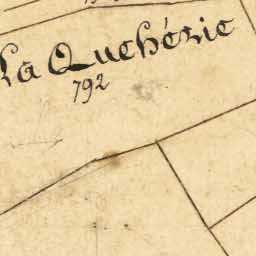 La Quehérie
792